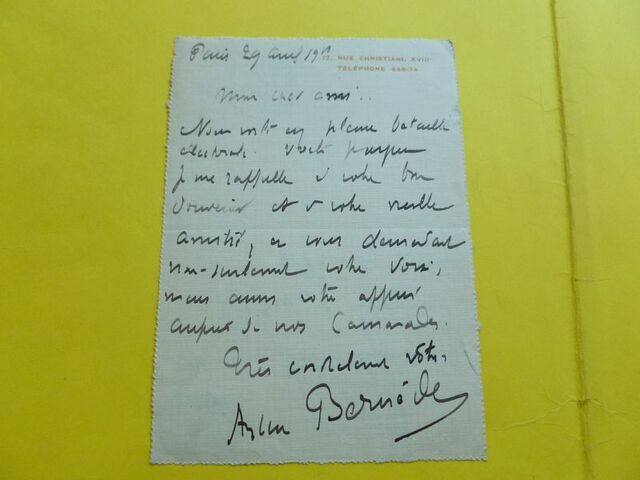 Paris 29 avril 19
17, RUE CHRISTIANI, XVIIIe
TÉLÉPHONE 446-74
Mon cher ami..
Nous voilà en pleine bataille
électorale. Voilà pourquoi
Je me rappelle à votre bon
souvenir et à votre vieille
amitié, en vous demandant
non-seulement votre voix,
mais aussi votre appui
auprès de nos Camarades.
Très cordialement vôtre,
Arthur Bernède